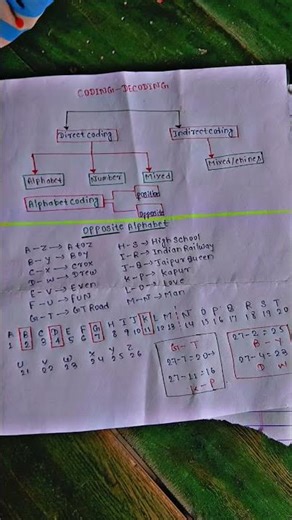 CODING-DECODING
Direct coding Indirect coding
Mixed/chines
Alphabet Number Mixed
Alphabet coding Position
Opposite
Opposite Alphabet
A-Z→ A to Z H-S→High School
B-Y→ Boy I-R→Indian Railway
C-X→ Crox J-Q→Jaipur Queen
D-W→ Drew K-P→ Kapur
E-V→ Even L-O→ Love
F-U→ FUN M-N→ Man
G-T→ GT Road
A B C D E F G H I J K L M N O P Q R S T
1 2 3 4 5 6 7 8 9 10 11 12 13 14 15 16 17 18 19 20
U V W X Y Z
21 22 23 24 25 26
G-T
27-7=20→
27-11=16
K-P
27-2=25
B-Y
27-4=23
D W